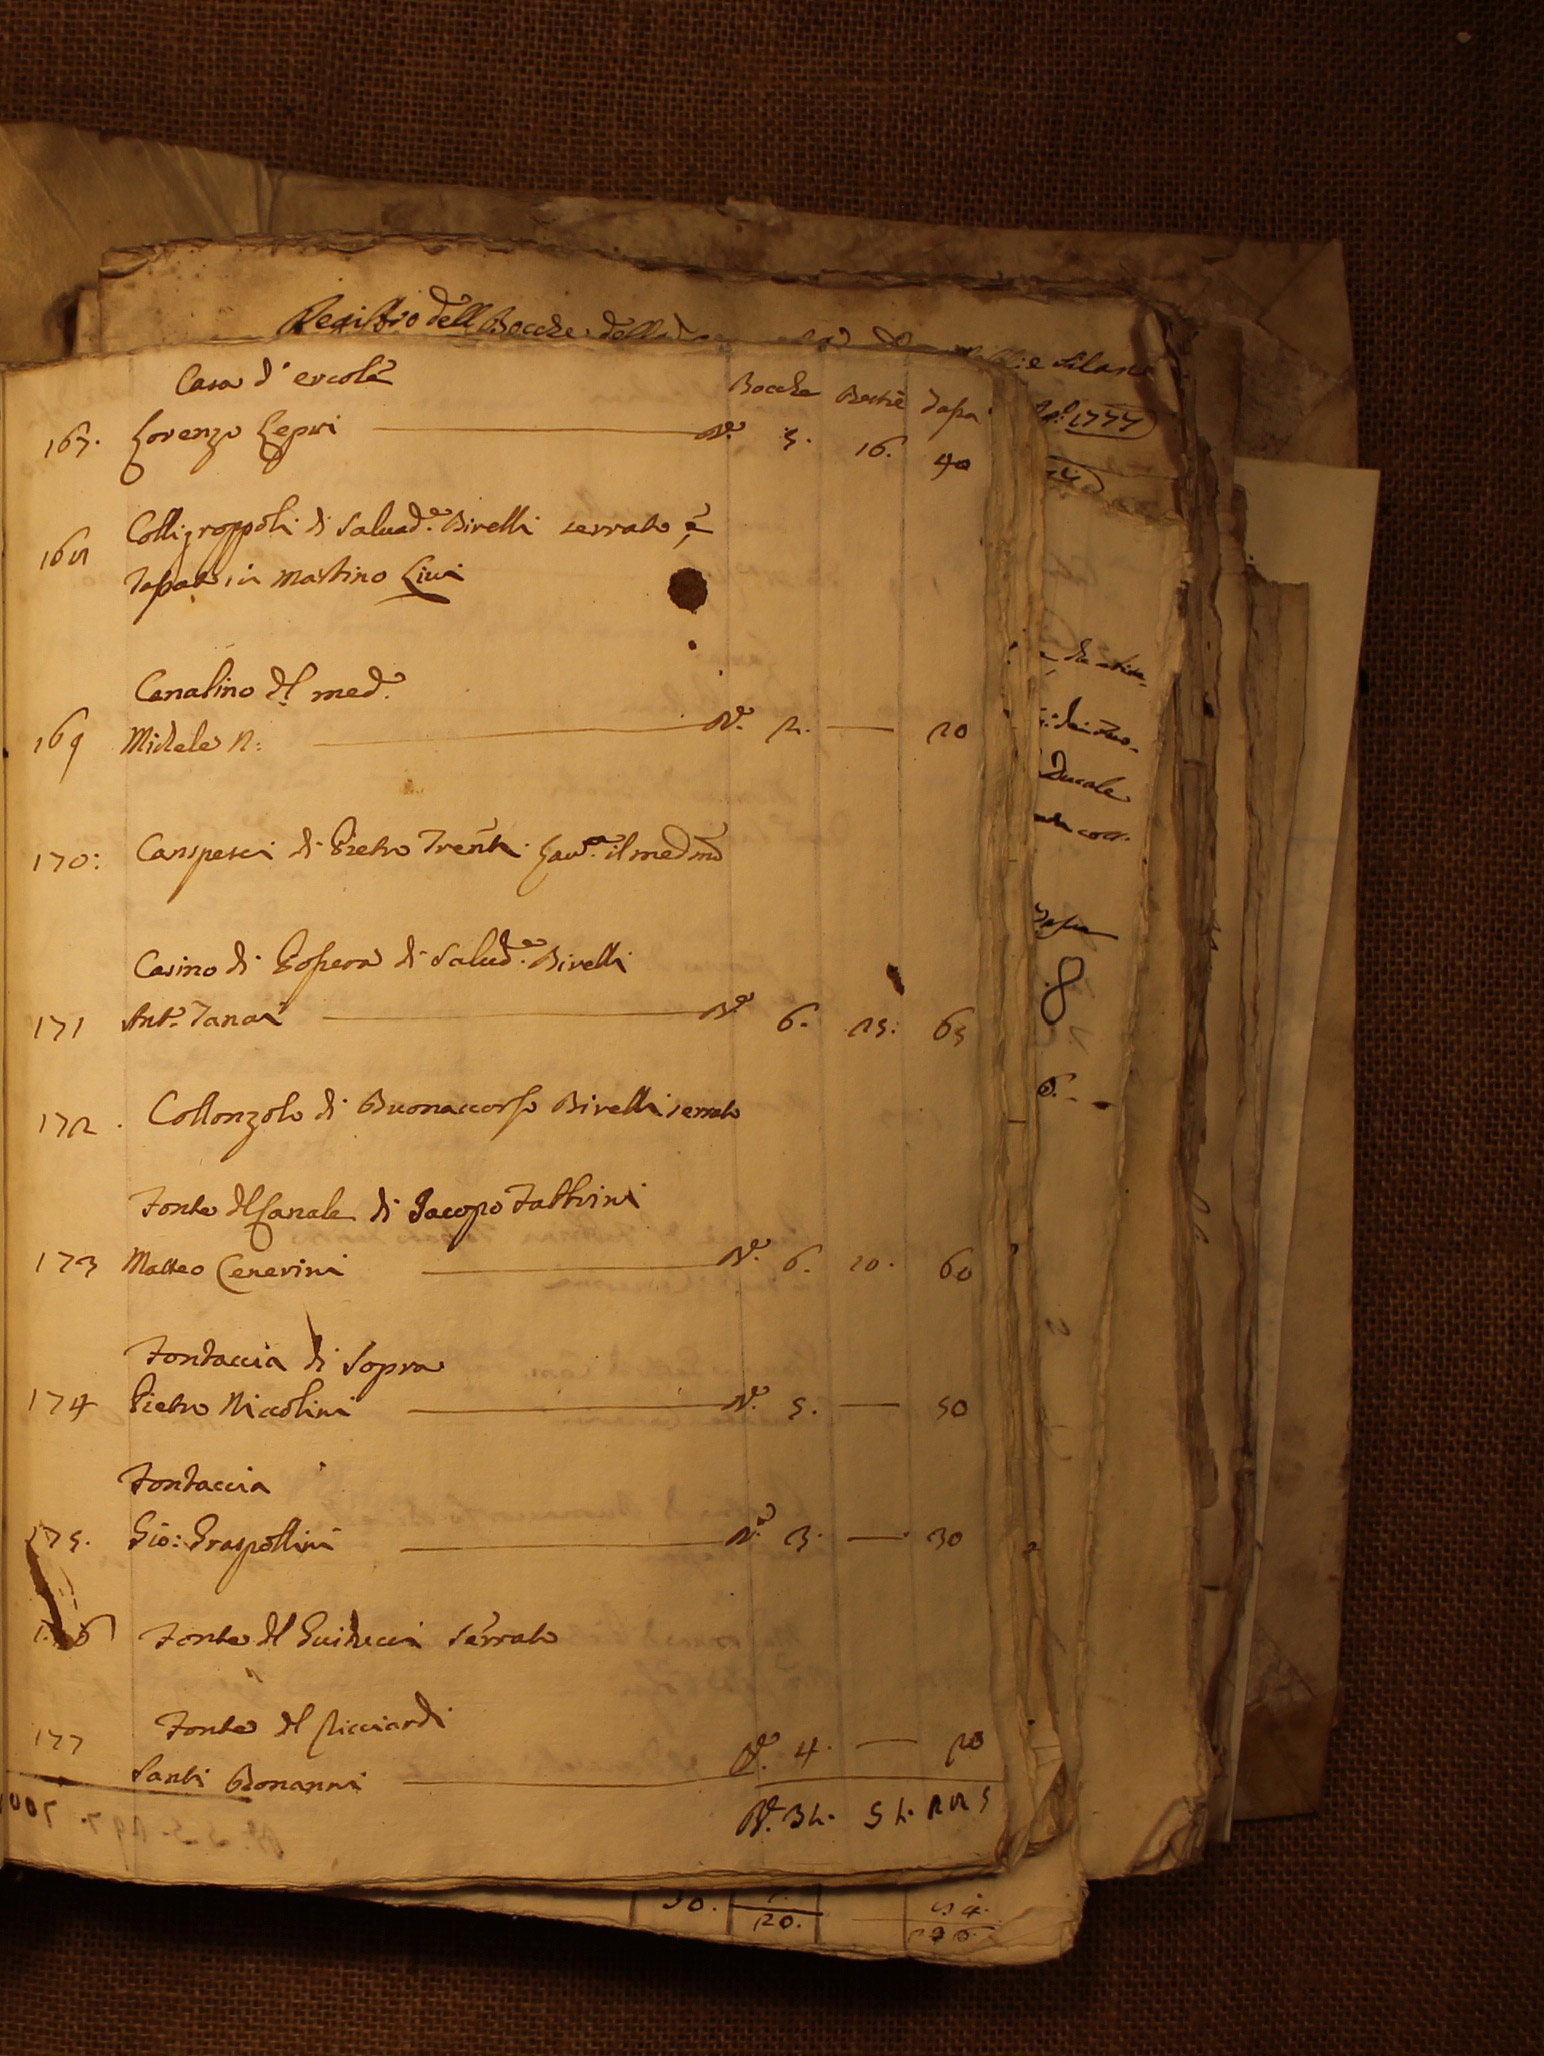 Registro dell Bocche dell
Casa d' ercole
Bocche Bestie Tassa
1777
167. Lorenzo Lepri N.o 5. 16. 40
168 Colligroppoli di Salvad.e Birelli serrato, e
Tassato in Martino Livi
Canalino dl med.o
169 Michele N: N.o 2. — 20
170: Canspesci di Pietro Trenti Lav.a il medmo
Casino di Gossera di Salvd.e Birelli
171 Ant.o Tanai N.o 6. 25: 65
172. Collonzolo di Buonaccorso Birelli serrato
Fonte dl Canale di Jacopo Fabbrini
173 Matteo Cenerini N.o 6. 10. 60
Fondaccia di Sopra
174 Pietro Niccolini N.o 5. — 50
Fondaccia
175. Gio: Graspollini N.o 3. — 30
Fonte dl Guiducci serrato
Fonte dl Ricciardi
177 Santi Bonanni N.o 4. — 20
Ducale
Tassa
8
6.
50.
20.